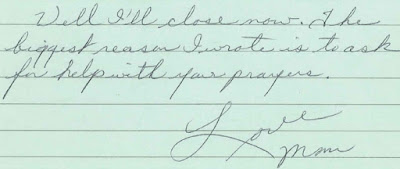 Well I'll close now. The
biggest reason I wrote is to ask
for help with your prayers.
Love
Mom